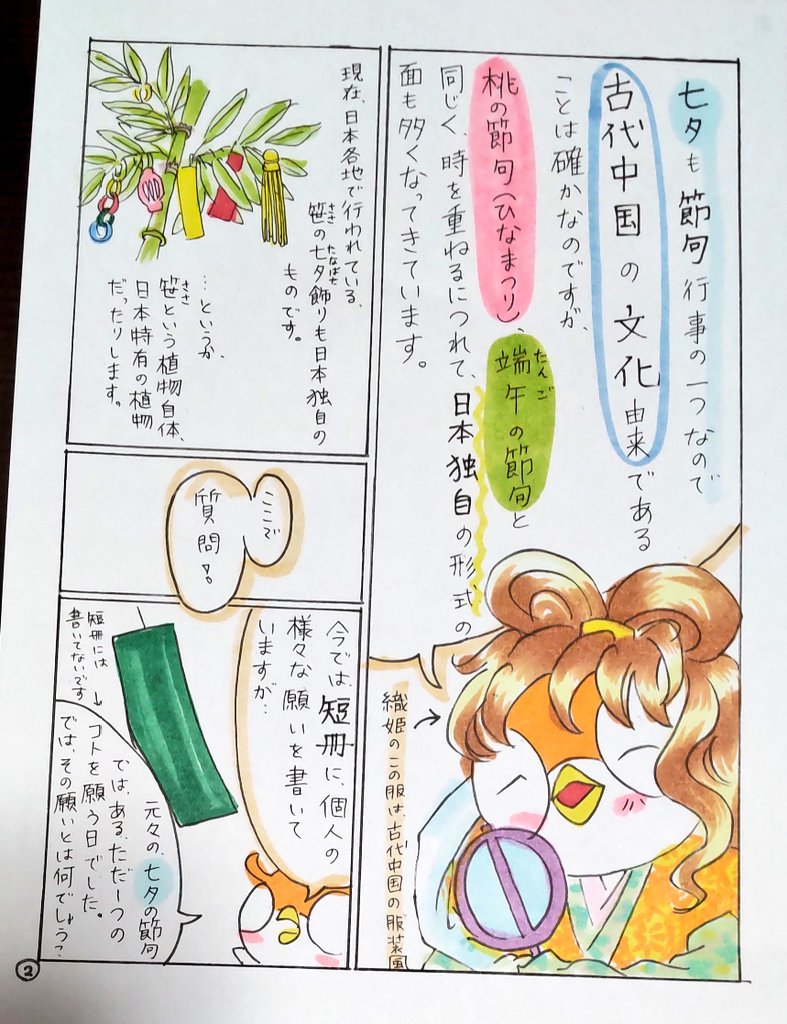 七夕も節句行事の一つなので
古代中国の文化由来である
ことは確かなのですが、
桃の節句(ひなまつり)、端午の節句と
たんご
同じく、時を重ねるにつれて、日本独自の形式の
面も多くなってきています。
織姫のこの服は、古代中国の服装風
現在、日本各地で行われている、
笹の七夕飾りも日本独自の
ささ たなばた
ものです。
…というか、
笹という植物自体、
ささ
日本特有の植物
だったりします。
ここで
質問!
今では、短冊に、個人の
様々な願いを書いて
いますが…
短冊には→
書いてないです
元々の、七夕の節句
では、ある、ただ一つの
コトを願う日でした。
では、その願いとは何でしょう?
2